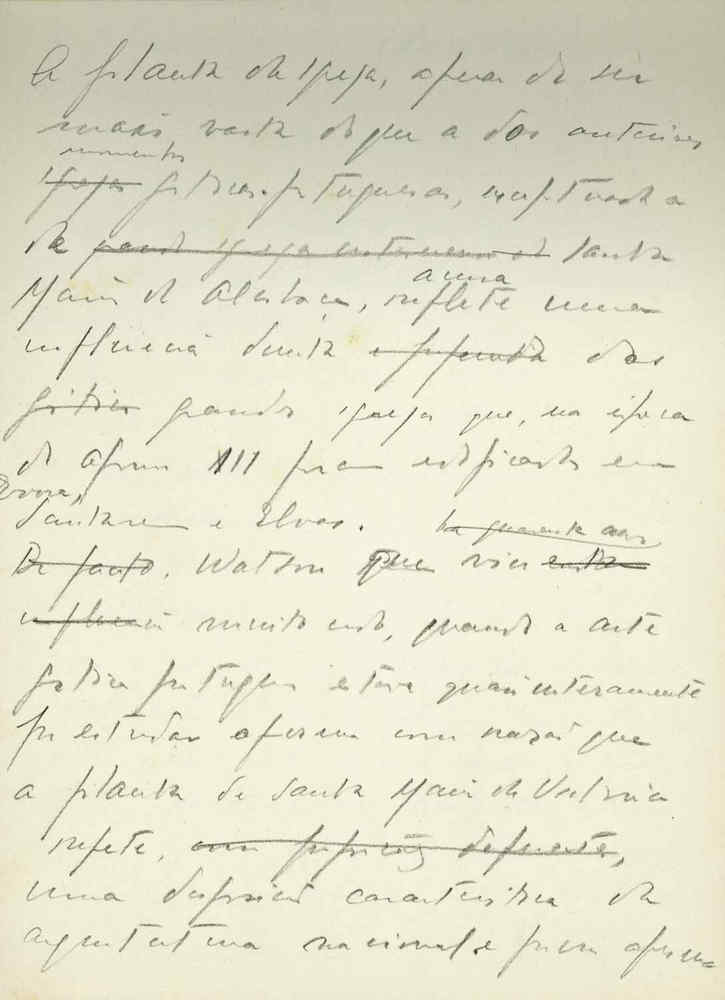 A planta da igreja, apesar de ser
mais vasta do que a dos anteriores
monumentos
igrejas góticos portugueses, exceptuada a
da grande igreja cisterciense de Santa
Maria de Alcobaça, acusa reflete uma
influencia directa e profunda das
góticas grandes igrejas que, na época
de Afonso III foram edificadas em
Evora,
Santarem e Elvas. ha quarenta anos
De facto, Watson que viu esta
influencia muito cedo, quando a arte
gótica portuguesa estava quasi inteiramente
por estudar afirma com razão que
a planta de Santa Maria da Vitoria
repete,
uma disposição caracteristica da
arquitectura nacional e para